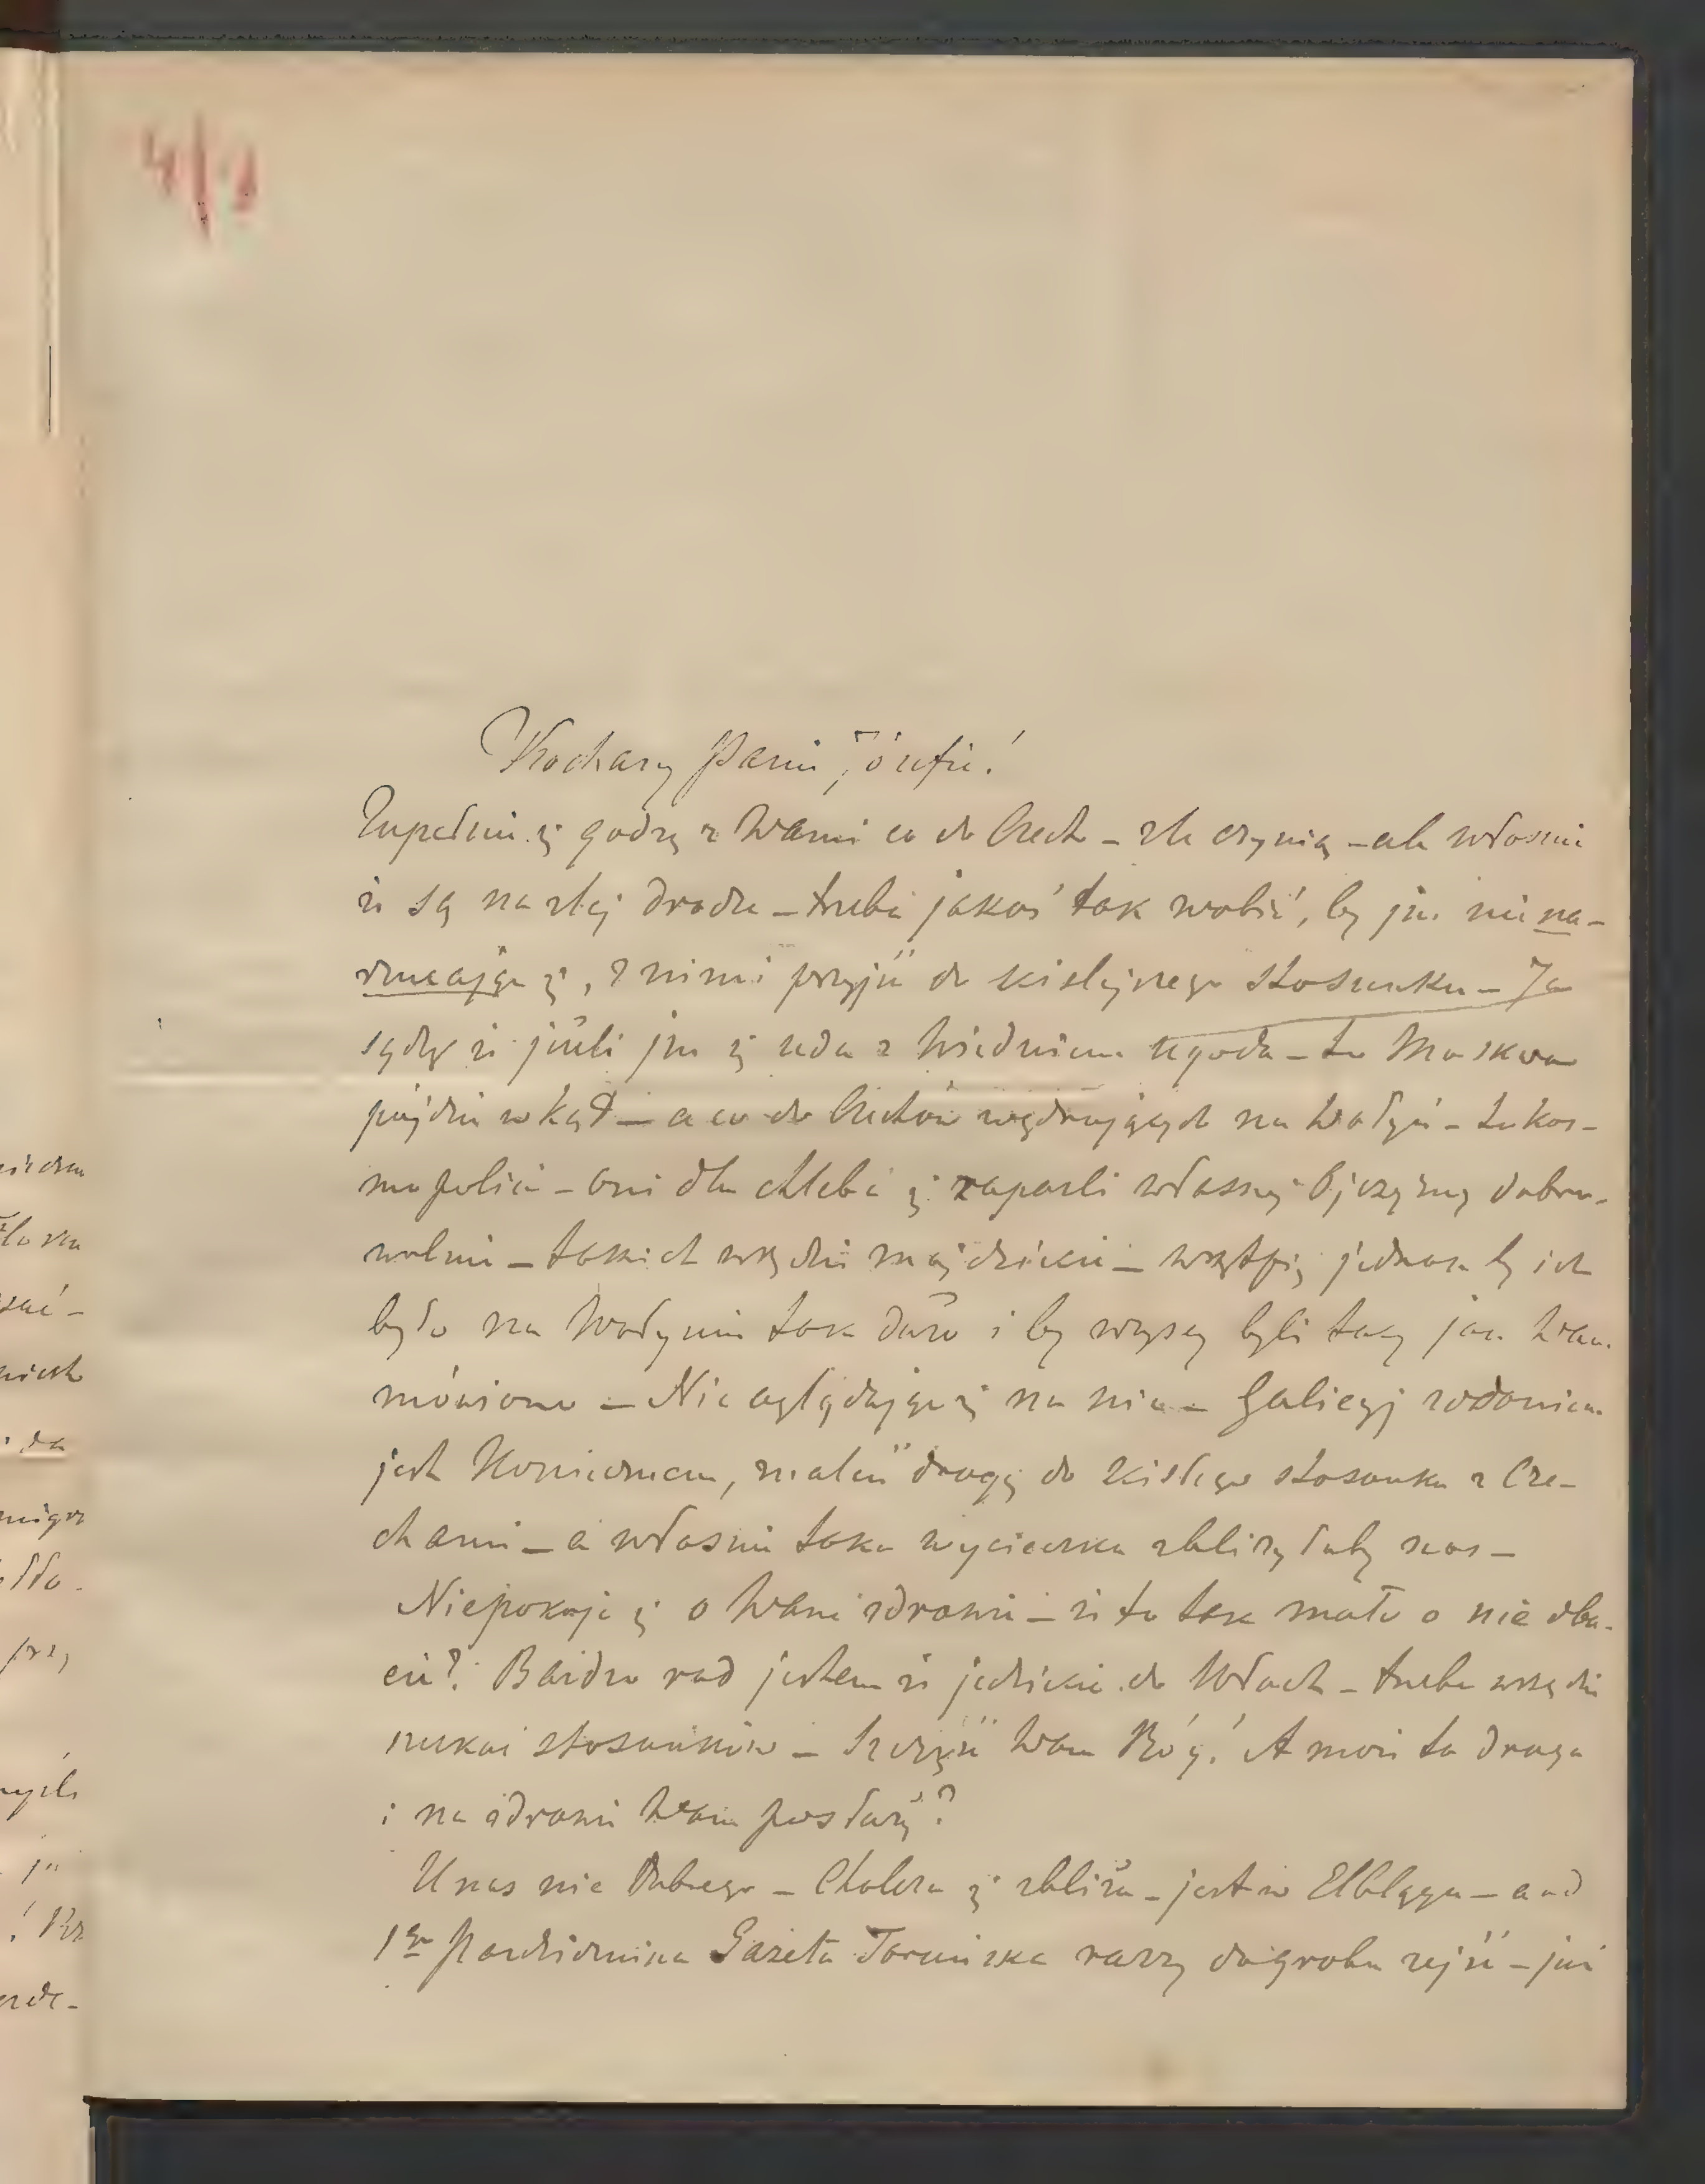 4/9
Kochany Panie Józefie!
Zupełnie się godzę z Wami co do Czech – źle czynią – ale właśnie
że są na złej drodze – trzeba jakoś tak zrobić, by już nie na-
rzucając się, z nimi przyjść do ściślejszego stosunku – Ja
sądzę że jeśli już się uda z Wiedniem ugoda – to Moskwa
pójdzie w kąt – a co do Czechów wędrujących na Wołyń – to kos-
mopolici – oni dla chleba się zaparli własnej Ojczyzny dobro-
wolnie – takich wszędzie znajdziecie – wątpię jednak by ich
było na Wołyniu tak dużo i by wszyscy byli tacy jak Wam
mówiono – Nie oglądając się na nic – Galicyj zadaniem
jest koniecznem, znaleść drogę do ścisłego stosunku z Cze-
chami – a właśnie taka wycieczka zbliżyłaby nas –
Niepokoję się o Wasze zdrowie – że to tak mało o nie dba-
cie? Bardzo rad jestem że jedziecie do Włoch – trzeba wszędzie
szukać stosunków – Szczęść Wam Bóg! A może ta droga
i na zdrowie Wam posłuży?
U nas nic dobrego – Cholera się zbliża – jest w Elblągu – a od
1go Października Gazeta Toruńska raczy do grobu zejść – już